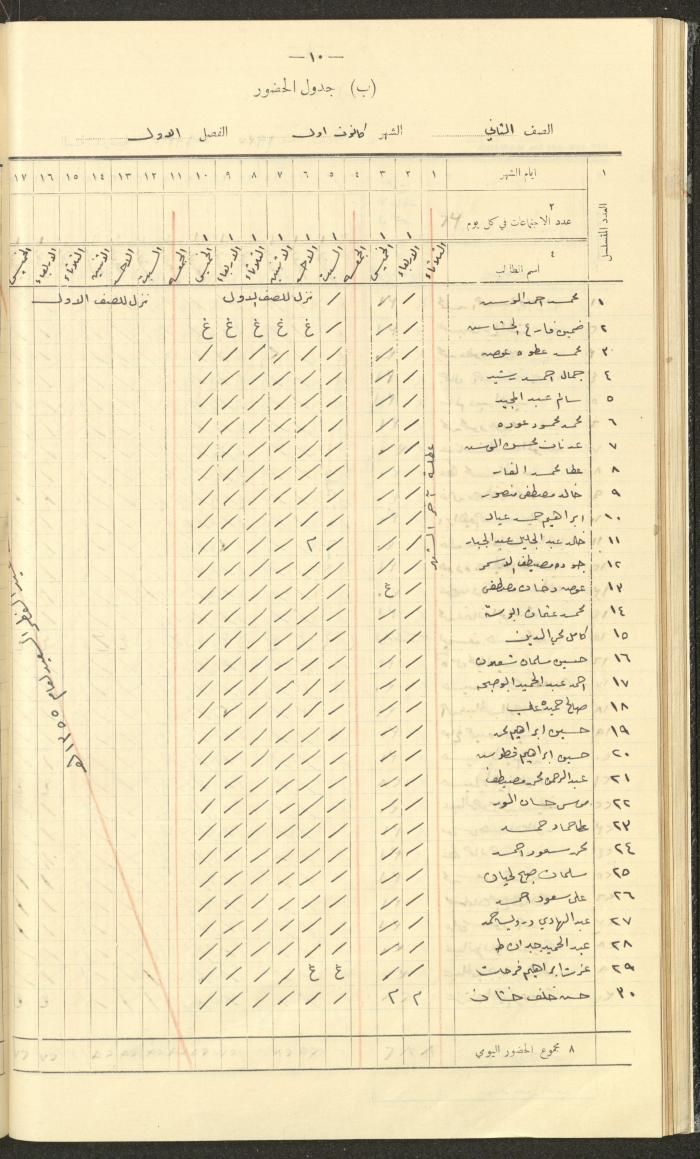 — ١٠ —
(ب) جدول الحضور
الصف الثاني الشهر كانون اول الفصل الاول
١ ايام الشهر ١ ٢ ٣ ٤ ٥ ٦ ٧ ٨ ٩ ١٠ ١١ ١٢ ١٣ ١٤ ١٥ ١٦ ١٧
العدد المتسلسل
٢
عدد الاجتماعات في كل يوم ١ ١ ١ ١ ١ ١ ١ ١
٤
اسم الطالب الثلاثاء الاربعاء الخميس الجمعه السبت الاحد الاثنين الثلاثاء الاربعاء الخميس الجمعه السبت الاحد الاثنين الثلاثاء الاربعاء الخميس
١ محمد احمد / / / نزل للصف الاول نزل للصف الاول
٢ ضمين فارع / / / غ غ غ غ غ
٣ محمد عطوه عوض / / / / / / / /
٤ جمال احمد رشيد / / / / / / / /
٥ سالم عبد المجيد / / / / / / / /
٦ محمد محمود عوده / / / / / / / /
٧ عدنان محسن / / / / / / / /
٨ عطا محمد الفار / / / / / / / /
٩ خالد مصطفى منصور / / / / / / / /
١٠ ابراهيم حمد عياد / / / / / / / /
١١ خالد عبد الجليل عبد الجبار / / / ٢ / / / /
١٢ جوده مصطفى الاسمر / / / / / / / /
١٣ عوض دخان مصطفى / غ / / / / / /
١٤ محمد عثمان ابوسته / / / / / / / /
١٥ كامل محي الدين / / / / / / / /
١٦ حسين سلمان شعبان / / / / / / / /
١٧ احمد عبد الحميد / / / / / / / /
١٨ صالح حميده / / / / / / / /
١٩ حسين ابراهيم محمد / / / / / / / /
٢٠ حسين ابراهيم قطوس / / / / / / / /
٢١ عبد الرحمن محمد مصطفى / / / / / / / /
٢٢ حسان / / / / / / / /
٢٣ عطا حماد حمد / / / / / / / /
٢٤ محمد سعود احمد / / / / / / / /
٢٥ سلمان / / / / / / / /
٢٦ علي سعود احمد / / / / / / / /
٢٧ عبد الهادي درويش حمد / / / / / / / /
٢٨ عبد الحميد جبران طه / / / / / / / /
٢٩ عزت ابراهيم فرحات / / غ غ / / / /
٣٠ حسن خلف ٢ ٢ / / / / / /
عطلة آخر الشهر
عيد الفطر السعيد لعام ١٣٥٥ هـ
٨ مجموع الحضور اليومي